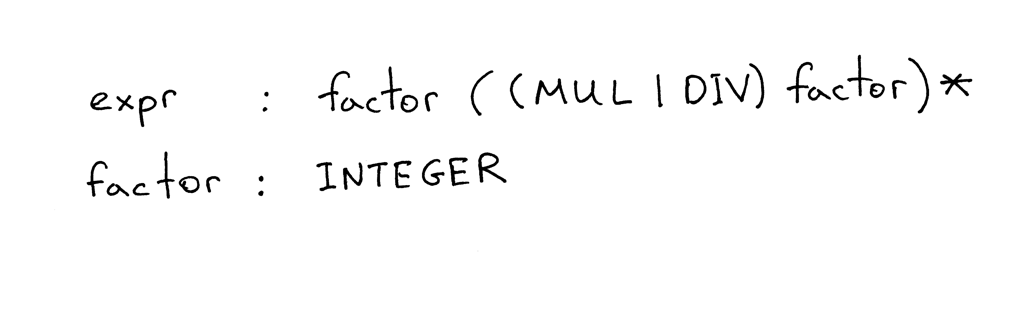 expr : factor ((MUL | DIV) factor)*
factor : INTEGER